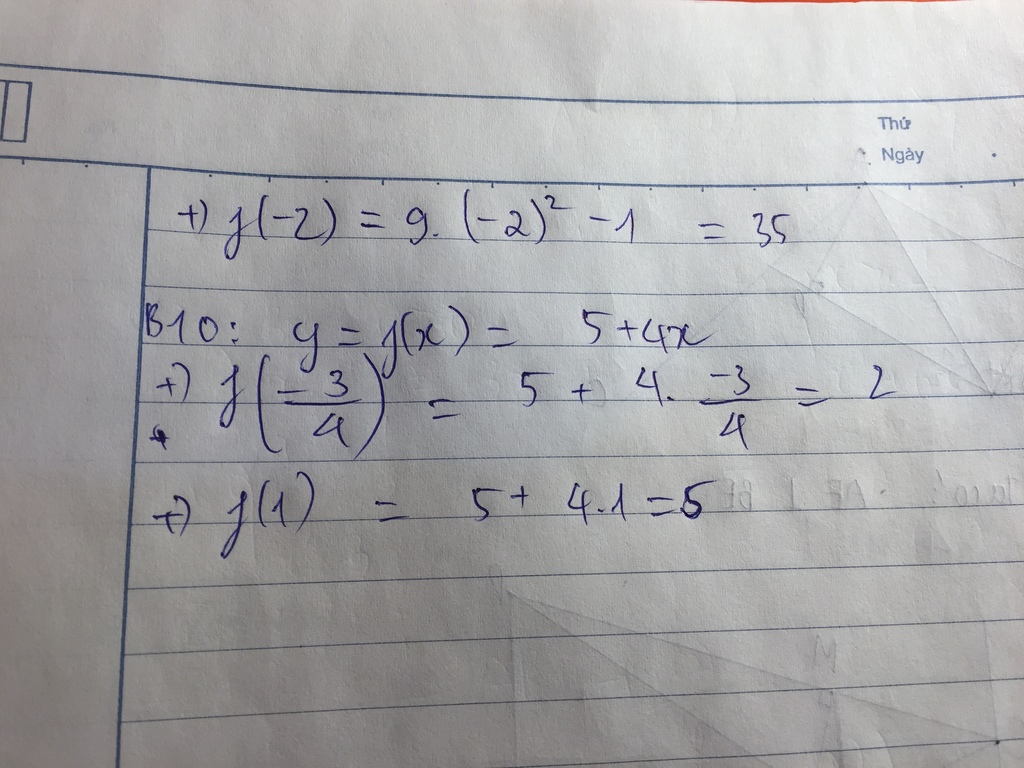 Thứ
Ngày
+) f(-2) = 9. (-2)² - 1 = 35
B10: y = f(x) = 5+4x
+) f(-3/4) = 5 + 4. -3/4 = 2
+) f(1) = 5 + 4.1 = 5